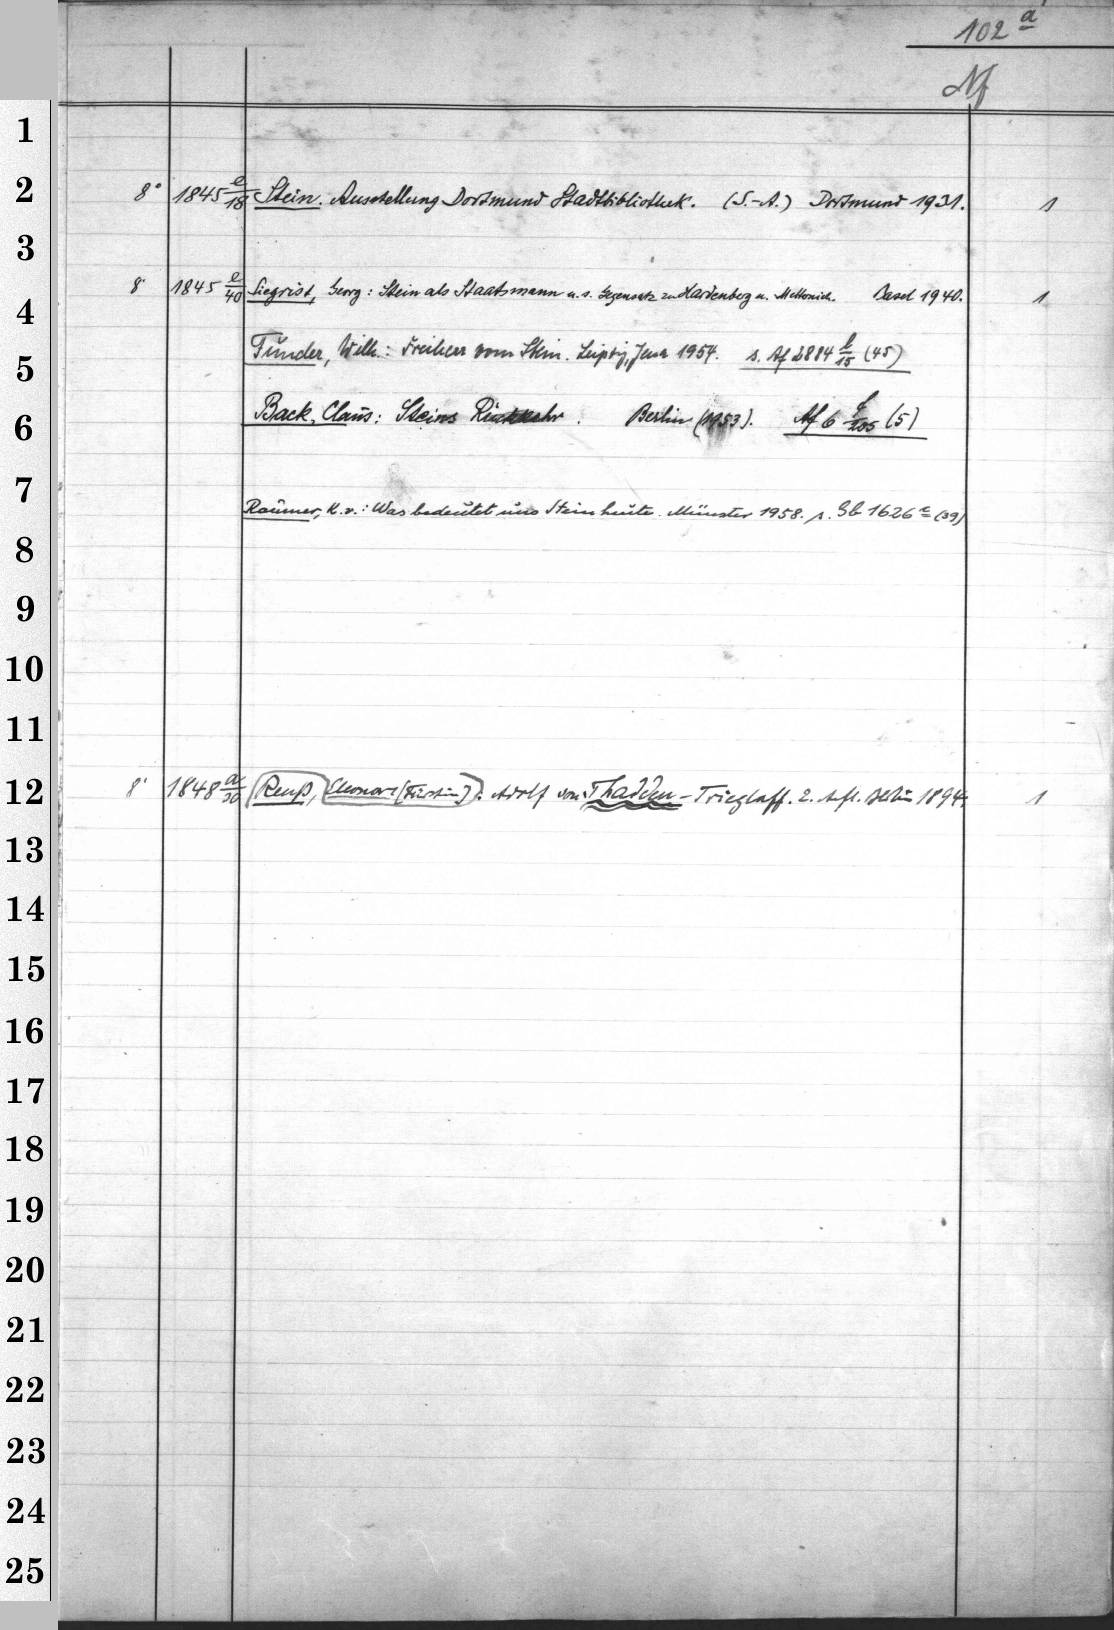 102 a
Nf
1
2 8° 1845 e/18 Stein. Ausstellung Dortmund Stadtbibliothek. (S.-A.) Dortmund 1931. 1
3
8° 1845 e/40 Siegrist, Georg: Stein als Staatsmann u. s. Gegensatz zu Hardenberg u. Metternich. Basel 1940. 1
4
5 Funder, Wilh.: Freiherr vom Stein. Leipzig, Jena 1954. s. Af 2884 b/15 (45)
6 Back, Claus: Steins Rückkehr. Berlin (1953). Af 6 /205 (5)
7 Raumer, K. v.: Was bedeutet uns Stein heute. Münster 1958. s. 1626 (39)
8
9
10
11
12 8° 1848 a/30 (Reuß, Eleonore [Fürstin]): Adolf von Thadden-Trieglaff. 2. Aufl. Berlin 1894. 1
13
14
15
16
17
18
19
20
21
22
23
24
25